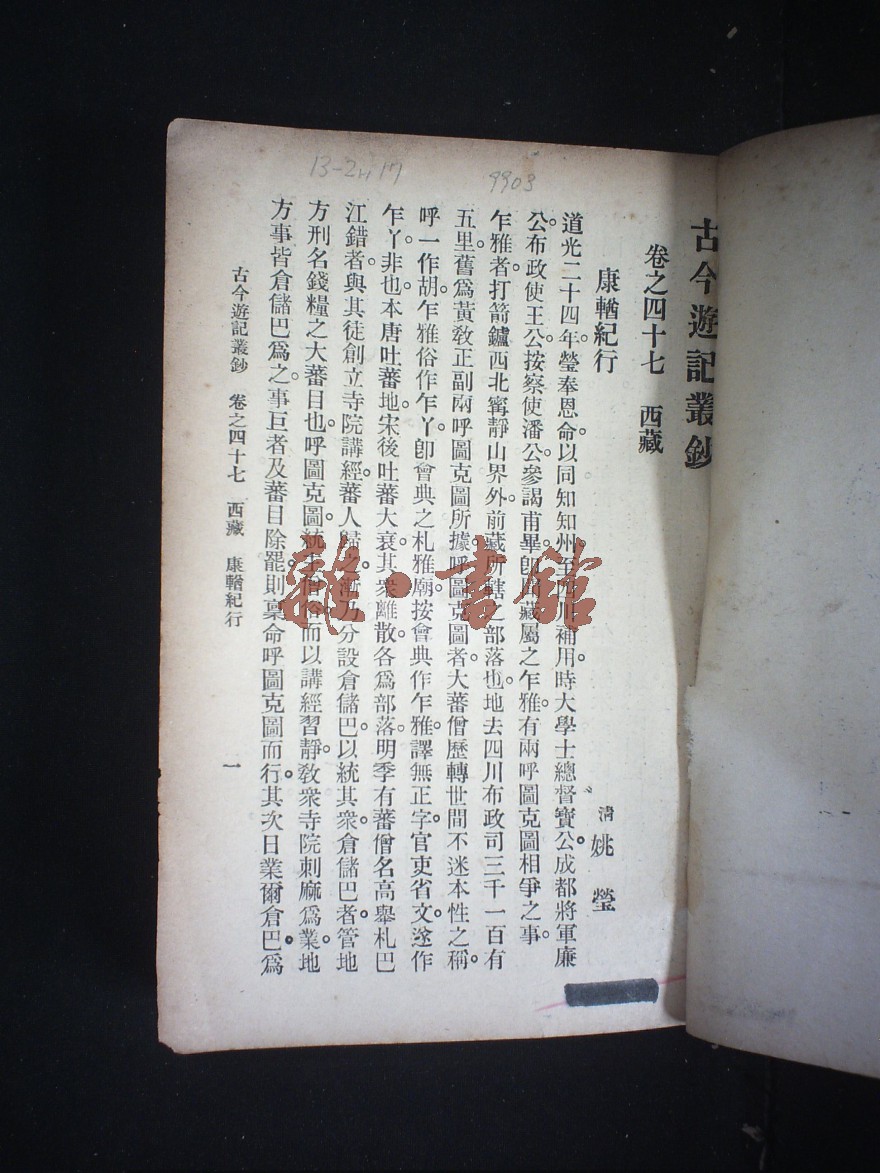 古今遊記叢鈔
卷之四十七　西藏
康輶紀行
清　姚瑩
道光二十四年。瑩奉恩命以同知知州至四川補用。時大學士總督寶公。成都將軍廉
公。布政使王公。按察使潘公。參謁甫畢。卽藏屬之乍雅。有兩呼圖克圖相爭之事。
乍雅者。打箭鑪西北寗靜山界外。前藏所轄之部落也。地去四川布政司三千一百有
五里。舊爲黃敎正副兩呼圖克圖所據。呼圖克圖者。大蕃僧歷轉世間不迷本性之稱。
呼一作胡。乍雅俗作乍丫。卽會典之札雅廟。按會典作乍雅。譯無正字。官吏省文。遂作
乍丫。非也。本唐吐蕃地。宋後吐蕃大衰。其衆離散。各爲部落。明季有蕃僧名高舉札巴
江錯者。與其徒創立寺院講經。蕃人歸之。漸乃分設倉儲巴。以統其衆。倉儲巴者。管地
方刑名錢糧之大蕃目也。呼圖克圖統主僧俗。而以講經習靜。敎衆寺院刺麻爲業。地
方事皆倉儲巴爲之。事巨者及蕃目除罷。則稟命呼圖克圖而行。其次日業爾倉巴。爲
古今遊記叢鈔　卷之四十七　西藏　康輶紀行　一
13-2H17
9903
雜·書館